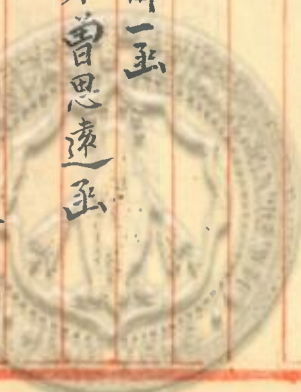 一函
曾思遠函